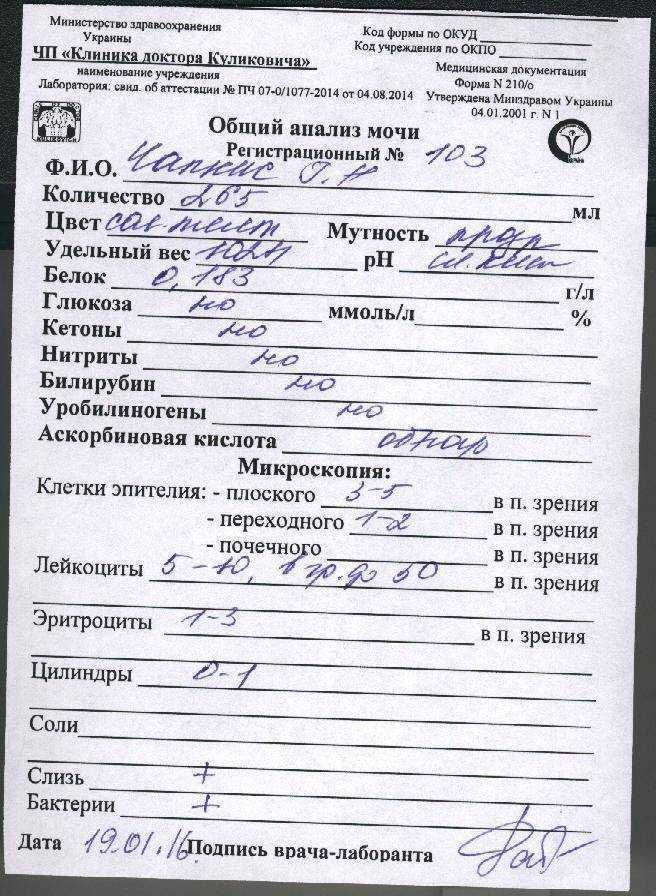 Министерство здравоохранения
Украины
ЧП «Клиника доктора Куликовича»
наименование учреждения
Код формы по ОКУД
Код учреждения по ОКПО
Медицинская документация
Форма N 210/о
Утверждена Минздравом Украины
04.01.2001 г. N 1
Лаборатория: свид. об аттестации № ПЧ 07-0/1077-2014 от 04.08.2014
Общий анализ мочи
Регистрационный № 103
Ф.И.О. Чапкис Г. Н
Количество 265 мл
Цвет сол.желт Мутность прозр
Удельный вес 1024 pH сл.кисл
Белок 0,183 г/л
Глюкоза но ммоль/л %
Кетоны но
Нитриты но
Билирубин но
Уробилиногены но
Аскорбиновая кислота обнар
Микроскопия:
Клетки эпителия: - плоского 3-5 в п. зрения
- переходного 1-2 в п. зрения
- почечного в п. зрения
Лейкоциты 5-10, в гр. до 50 в п. зрения
Эритроциты 1-3 в п. зрения
Цилиндры 0-1
Соли
Слизь +
Бактерии +
Дата 19.01.16 Подпись врача-лаборанта